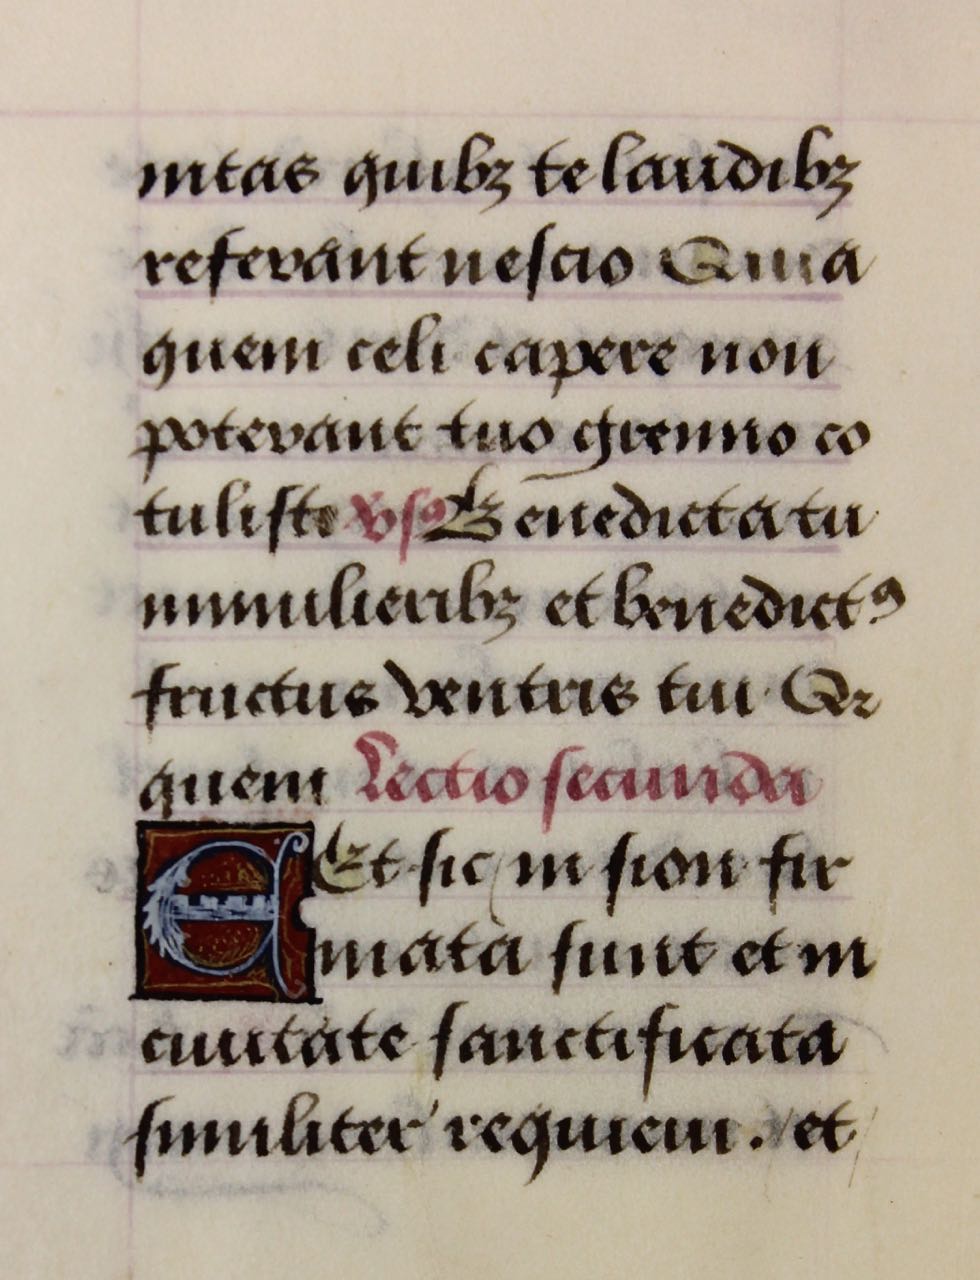 nitas quibꝫ te laudibꝫ
referant nescio Quia
quem celi capere non
poterant tuo gremio cō
tulisti vſꝰ Benedicta tu
in mulieribꝫ et benedictꝰ
fructus ventris tui Qꝛ
quem Lectio secunda
Et sic in sion fir
mata sunt et in
ciuitate sanctificata
similiter requieui. et